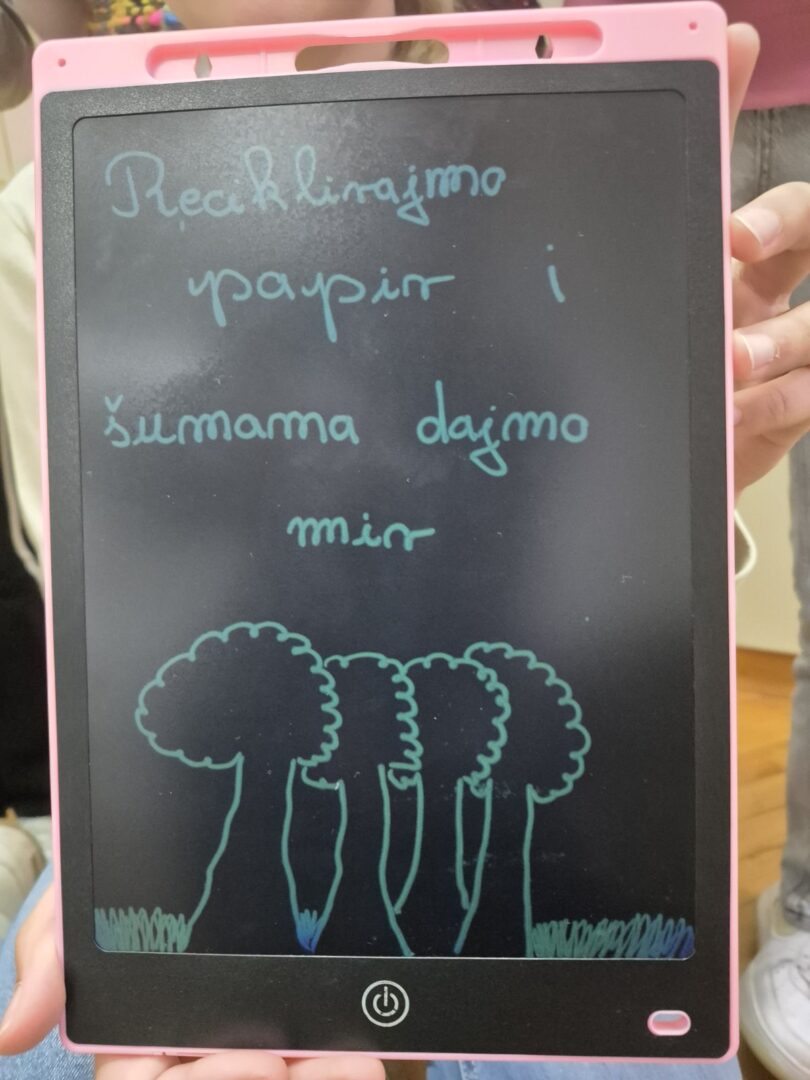 Reciklirajmo
papir i
šumama dajmo
mir